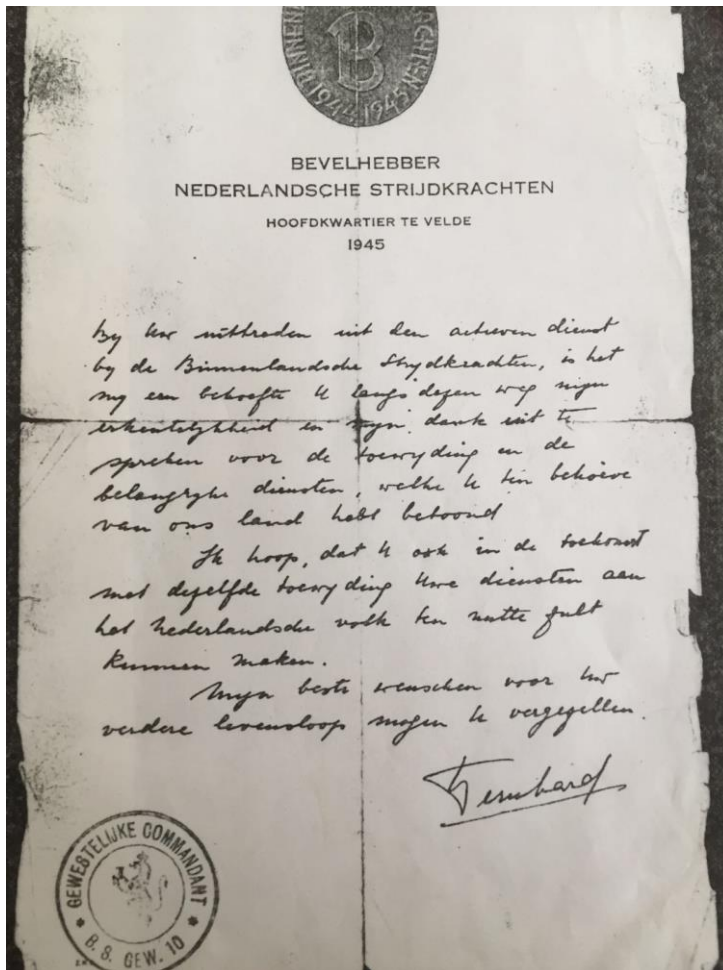 BINNEN
ACHTEN
B
1944 1945
BEVELHEBBER
NEDERLANDSCHE STRIJDKRACHTEN
HOOFDKWARTIER TE VELDE
1945
By Uw uittreden uit den actieven dienst
by de Binnenlandsche Strydkrachten, is het
my een behoefte U langs dezen weg myn
erkentelykheid en myn dank uit te
spreken voor de toewyding en de
belangryke diensten, welke U ten behoeve
van ons land hebt betoond
Ik hoop, dat U ook in de toekomst
met dezelfde toewyding Uwe diensten aan
het Nederlandsche volk ten nutte zult
kunnen maken.
Myn beste wenschen voor Uw
verdere levensloop mogen U vergezellen.
Bernhard
GEWESTELIJKE COMMANDANT
* B. S. GEW. 10 *